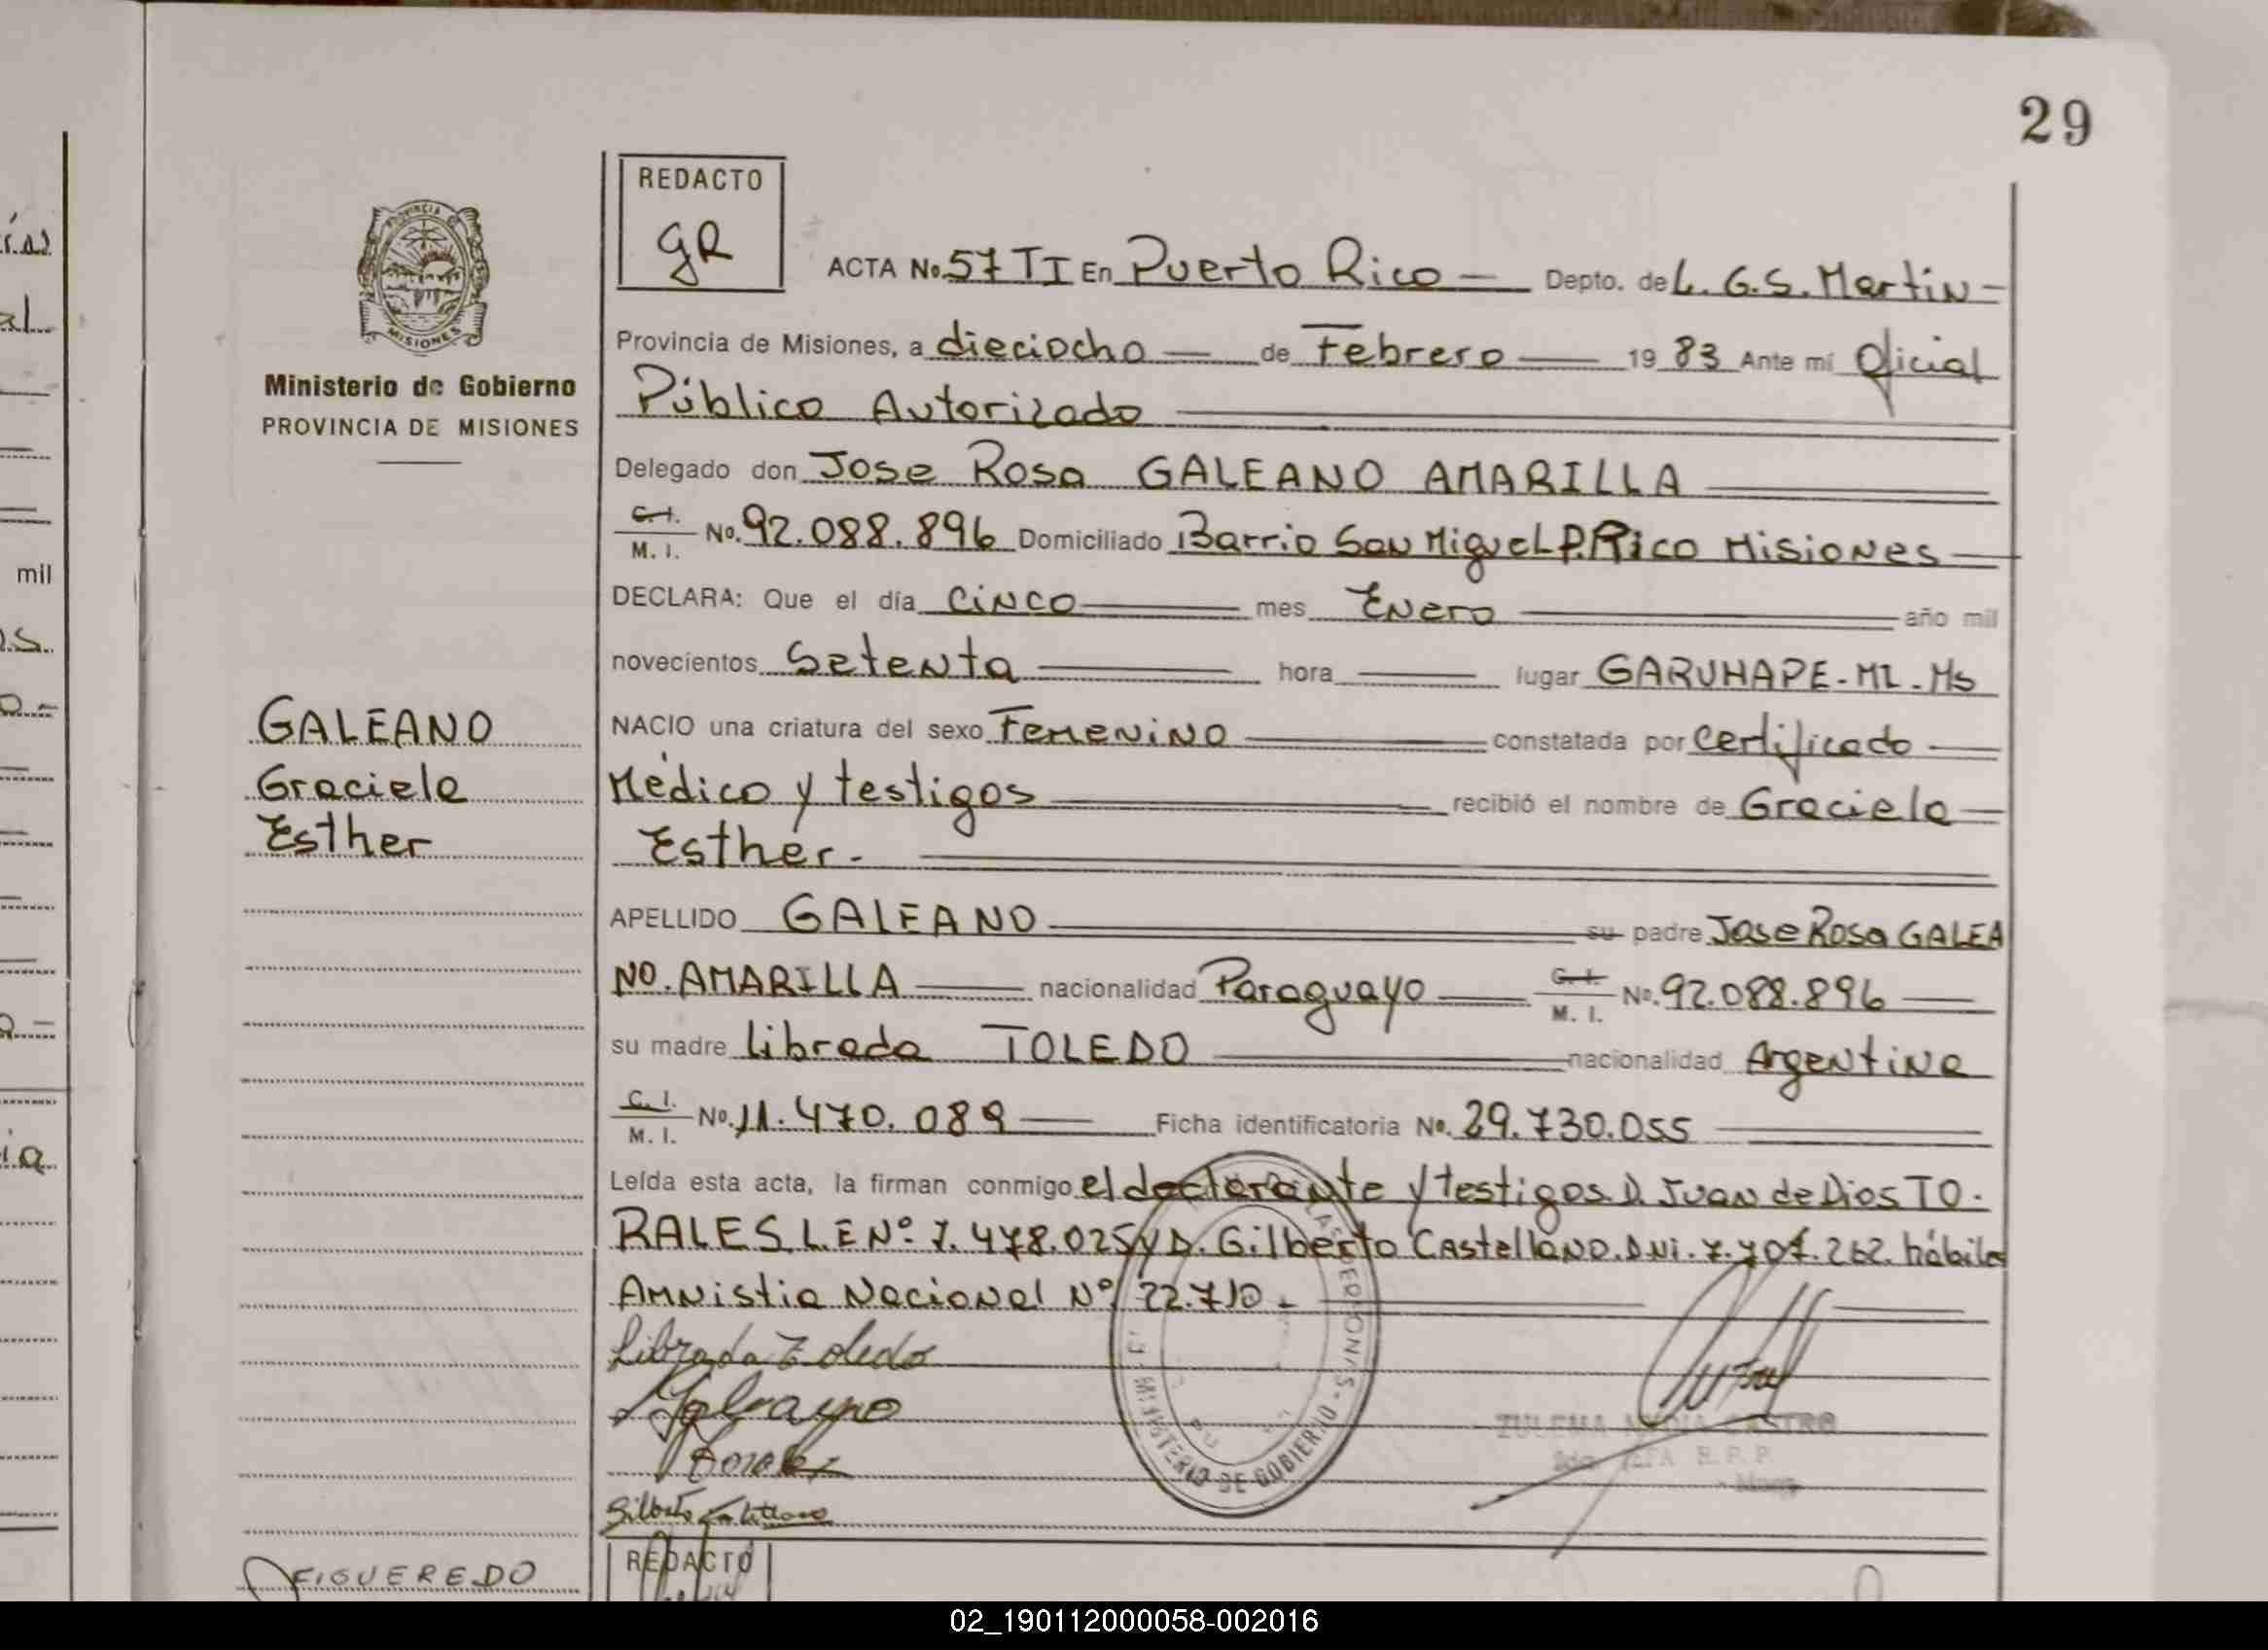 29
REDACTO
gR
PROVINCIA
MISIONES
Ministerio de Gobierno
PROVINCIA DE MISIONES
ACTA No. 57 TI En Puerto Rico — Depto. de L. G. S. Martin -
Provincia de Misiones, a dieciocho — de Febrero — 19 83 Ante mí Oficial
Público Autorizado
Delegado don Jose Rosa GALEANO AMARILLA
C. I. / M. I. No. 92.088.896 Domiciliado Barrio San Miguel P. Rico Misiones
DECLARA: Que el día cinco mes Enero año mil
novecientos Setenta hora — lugar GARUHAPE - MI - Ms
NACIO una criatura del sexo Femenino constatada por certificado
Médico y testigos recibió el nombre de Graciela
Esther.-
APELLIDO GALEANO su padre Jose Rosa GALEA
NO. AMARILLA nacionalidad Paraguayo C. I. / M. I. No. 92.088.896
su madre Librada TOLEDO nacionalidad Argentina
C. I. / M. I. No. 11.470.089 Ficha identificatoria No. 29.730.055
Leída esta acta, la firman conmigo el declarante y testigos. D. Juan de Dios TO.
RALES L.E Nº: 7.478.025 y D. Gilberto Castellano. DNI. 7.707.262. hábiles
Amnistia Nacional Nº 22.710.-
GALEANO
Graciela
Esther
Librada Toledo
Galeano
Gilberto Castellano
MINISTERIO DE GOBIERNO
ZULEMA CASTRO
REDACTO
FIGUEREDO
mil
02_190112000058-002016